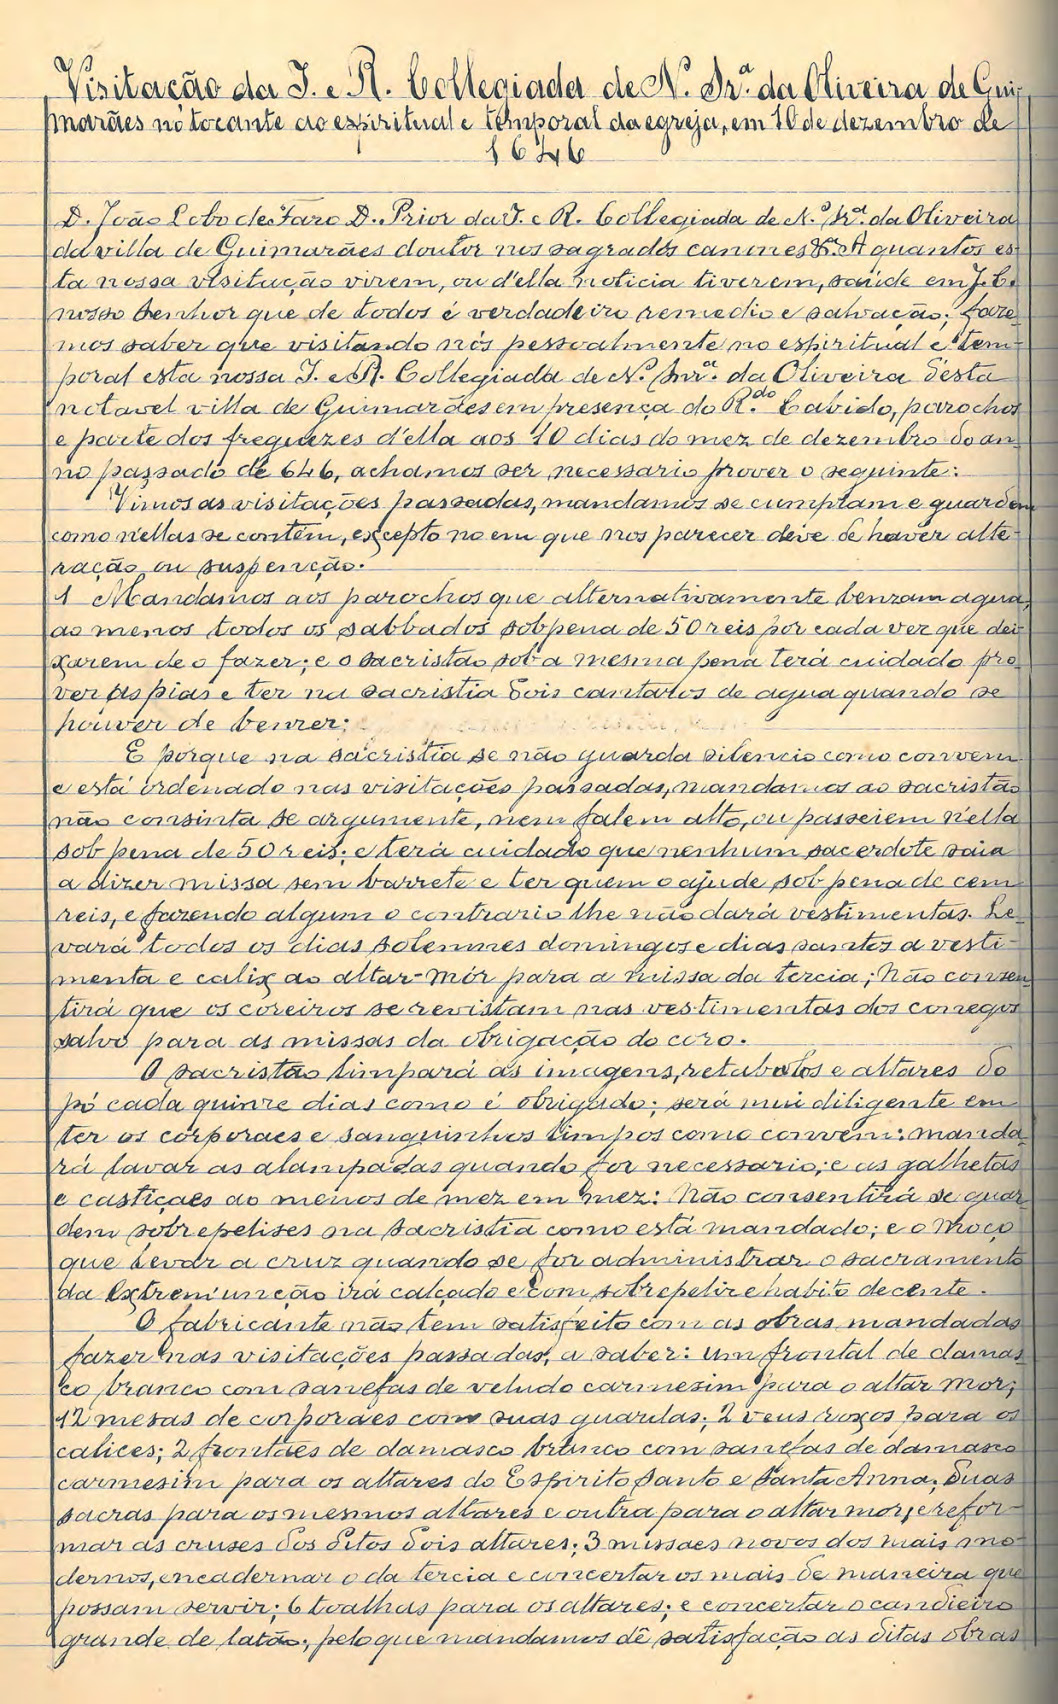 Visitação da I. e R. Collegiada de N.ª Sr.ª da Oliveira de Gui-
marães no tocante ao espiritual e temporal da egreja, em 10 de dezembro de
1646
D. João Lobo de Faro D. Prior da I. e R. Collegiada de N.ª Sr.ª da Oliveira
da villa de Guimarães doutor nos sagrados canones &.ª A quantos es-
ta nossa visitação virem, ou d'ella noticia tiverem, saúde em J. C.
nosso Senhor que de todos é verdadeiro remedio e salvação; faze-
mos saber que visitando nós pessoalmente no espiritual e tem-
poral esta nossa I. e R. Collegiada de N.ª Snr.ª da Oliveira d'esta
notavel villa de Guimarães em presença do R.do Cabido, parochos
e parte dos freguezes d'ella aos 10 dias do mez de dezembro do an-
no passado de 646, achamos ser necessario prover o seguinte:
Vimos as visitações passadas, mandamos se cumplam e guardem
como n'ellas se contêm, excepto no em que nos parecer deve de haver alte-
ração ou suspenção.
1 Mandamos aos parochos que alternativamente benzam agua,
ao menos todos os sabbados sob pena de 50 reis por cada vez que dei-
xarem de o fazer; e o sacristão sob a mesma pena terá cuidado pro-
ver as pias e ter na sacristia dois cantaros de agua quando se
houver de benzer;
E porque na sacristia se não guarda silencio como convem
e está ordenado nas visitações passadas, mandamos ao sacristão
não consinta se argumente, nem falem alto, ou passeiem n'ella
sob pena de 50 reis; e terá cuidado que nenhum sacerdote saia
a dizer missa sem barrete e ter quem o ajude sob pena de cem
reis, e fazendo algum o contrario lhe não dará vestimentas. Le-
vará todos os dias solemnes domingos e dias santos a vesti-
menta e calix ao altar-mór para a missa da tercia; Não consen-
tirá que os coreiros se revistam nas vestimentas dos conegos
salvo para as missas da obrigação do coro.
O sacristão limpará as imagens, retabulos e altares do
pó cada quinze dias como é obrigado; será mui diligente em
ter os corporaes e sanguinhos limpos como convem: manda-
rá lavar as alampadas quando for necessario; e as galhetas
e castiçaes ao menos de mez em mez: Não consentirá se guar-
dem sobrepelises na sacristia como está mandado; e o moço
que levar a cruz quando se for administrar o sacramento
da Extrem'unção irá calçado e com sobrepelize habito decente.
O fabricante não tem satisfeito com as obras mandadas
fazer nas visitações passadas, a saber: um frontal de damas-
co branco com sanefas de veludo carmesim para o altar mor;
12 mesas de corporaes com suas guardas; 2 veus roxos para os
calices; 2 frontaes de damasco branco com sanefas de damasco
carmesim para os altares do Espirito Santo e Santa Anna; duas
sacras para os mesmos altares e outra para o altar mor, e refor-
mar as cruses dos ditos dois altares; 3 missaes novos dos mais mo-
dernos, encadernar o da tercia e concertar os mais de maneira que
possam servir; 6 toalhas para os altares; e concertar o candieiro
grande de latão; pelo que mandamos dê satisfação as ditas obras